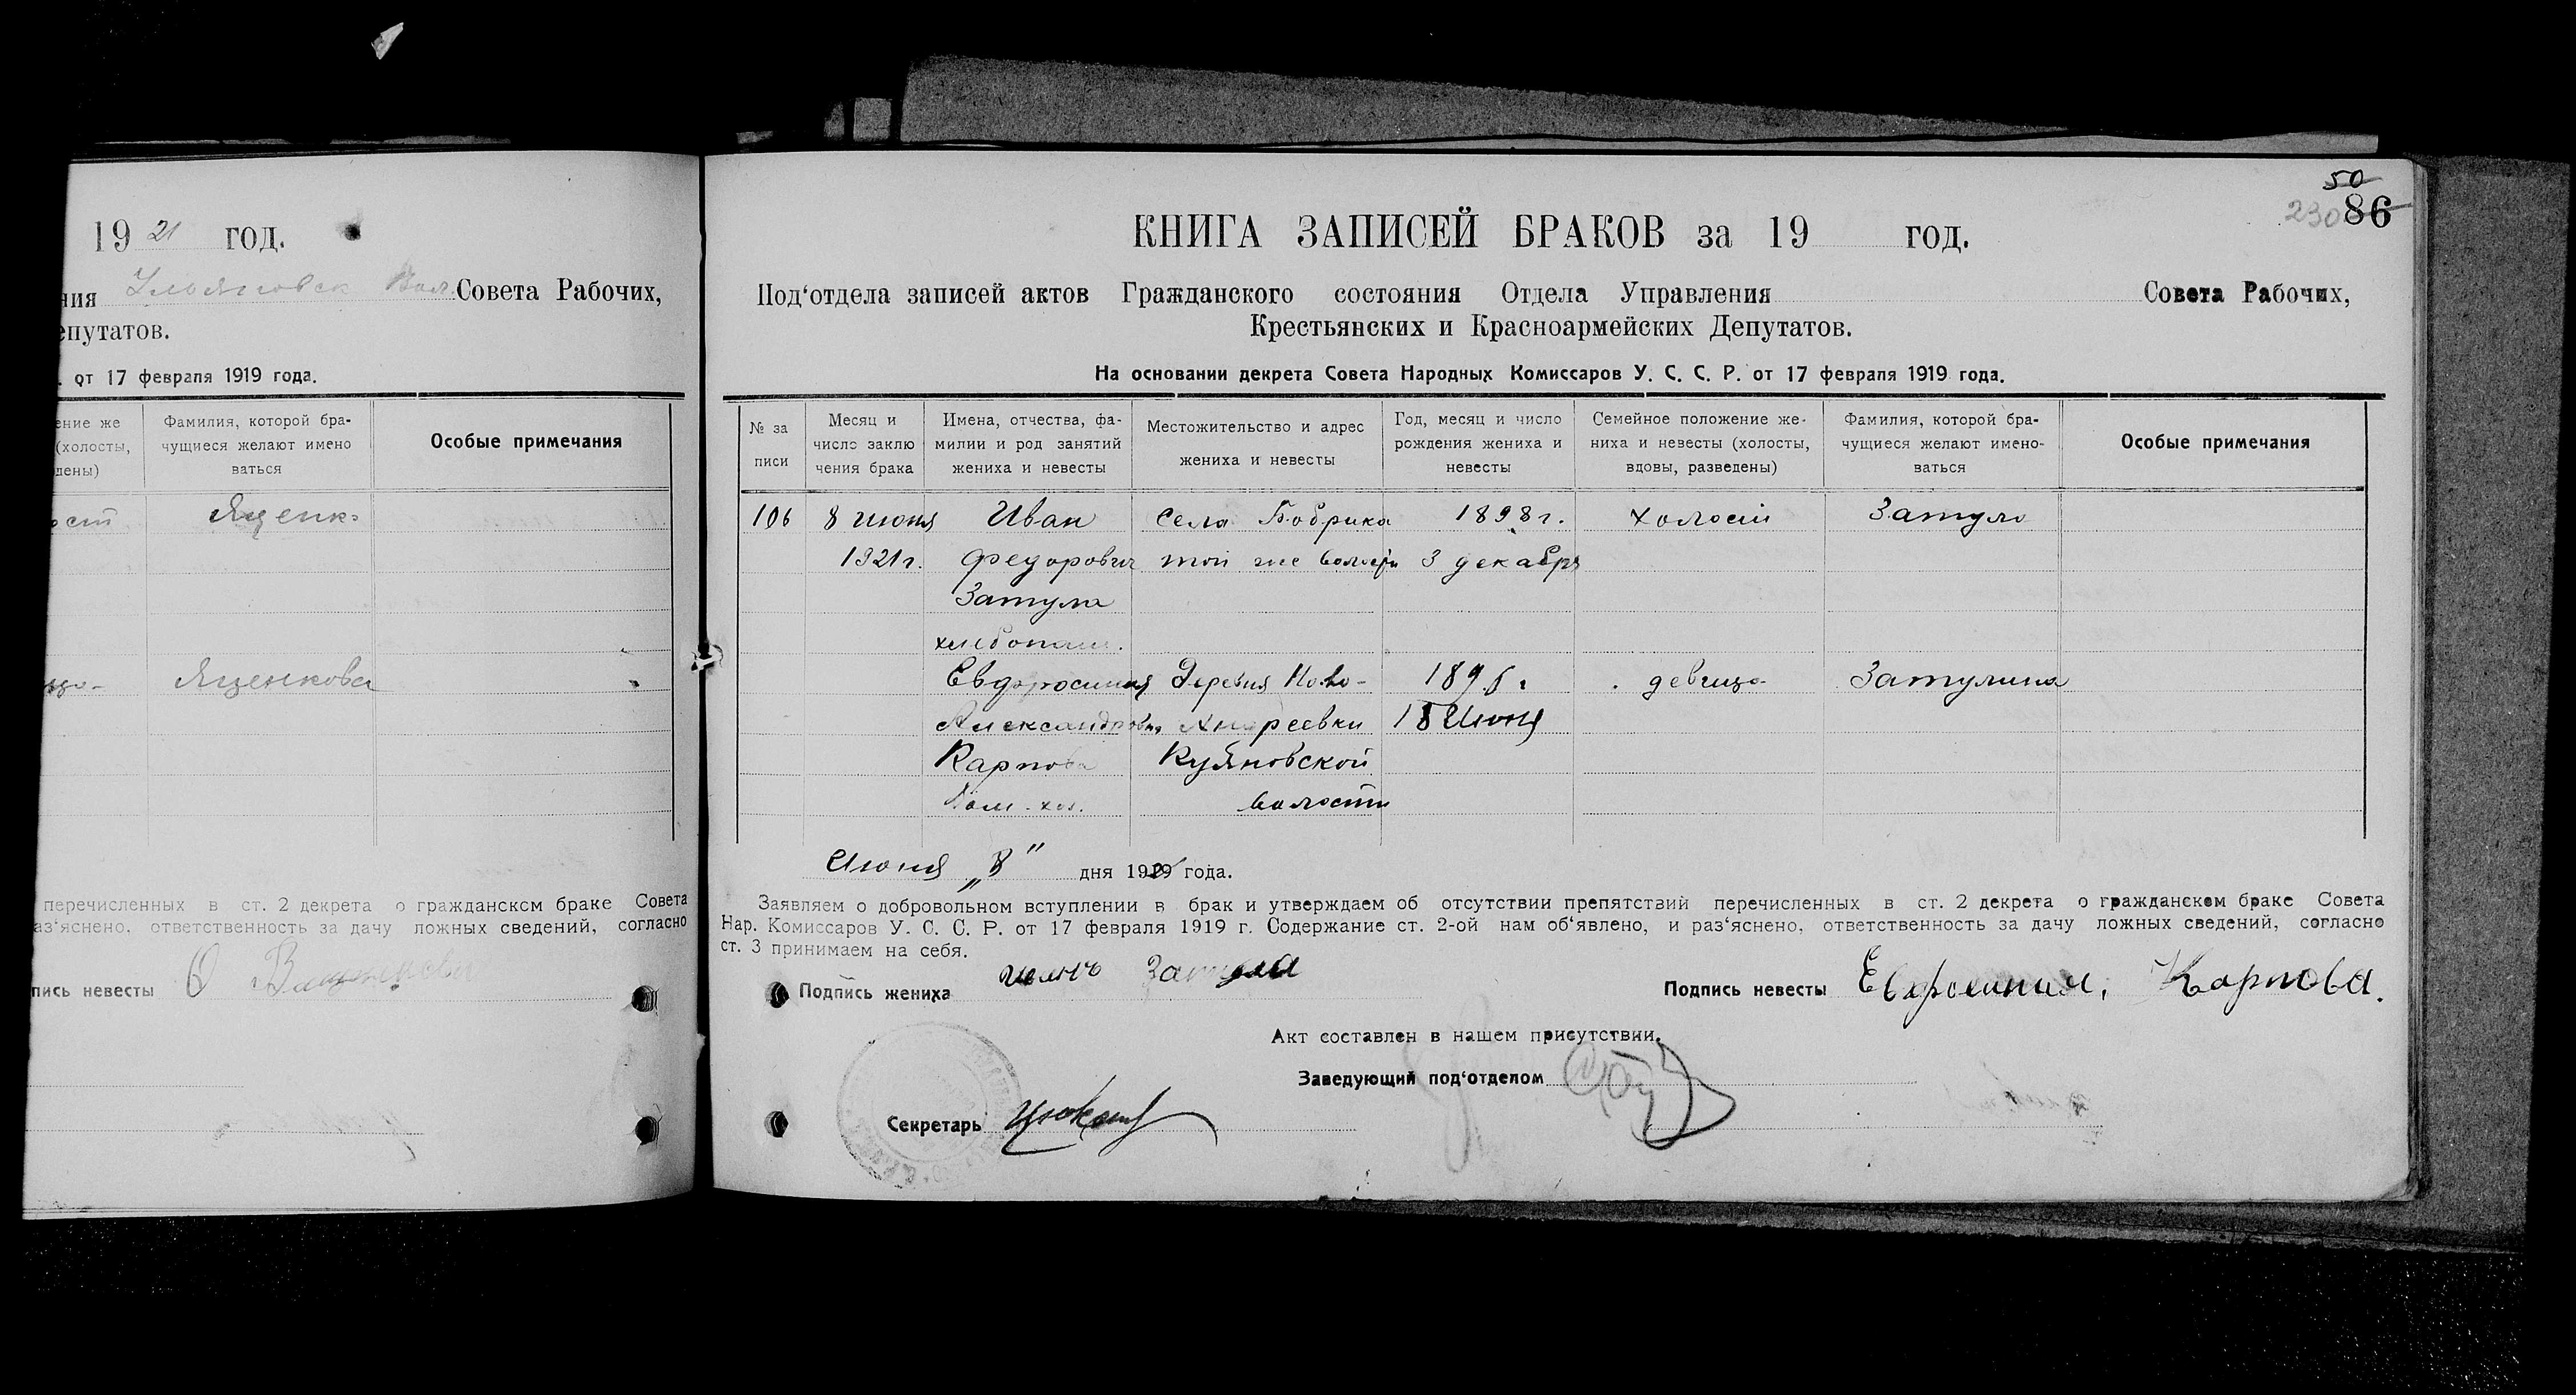 1921 год.
ния Ульяновск Вол. Совета Рабочих,
епутатов.
. от 17 февраля 1919 года.
ение же Фамилия, которой бра- Особые примечания
(холосты, чущиеся желают имено
дены) ваться
ост Яценко
Яценкова
перечисленных в ст. 2 декрета о гражданском браке Совета
аз‘яснено, ответственность за дачу ложных сведений, согласно
пись невесты
50
230 86
КНИГА ЗАПИСЕЙ БРАКОВ за 19 год.
Под‘отдела записей актов Гражданского состояния Отдела Управления Совета Рабочих,
Крестьянских и Красноармейских Депутатов.
На основании декрета Совета Народных Комиссаров У. С. С. Р. от 17 февраля 1919 года.
№ за Месяц и Имена, отчества, фа- Местожительство и адрес Год, месяц и число Семейное положение же- Фамилия, которой бра- Особые примечания
число заклю милии и род занятий рождения жениха и ниха и невесты (холосты, чущиеся желают имено-
писи чения брака жениха и невесты жениха и невесты невесты вдовы, разведены) ваться
106 8 июня Иван села Бобрика 1898 г. холост Затуло
1921 г. Федорович той же волости 3 декабря
Затула
хлебопаш.
Евдоросиния Деревня Ново- 189 г девица Затулина
Александровна Андреевки 18 Июня
Карпова Куяновской
Дом. хоз. волости
Июня „8“ дня 19 года.
Заявляем о добровольном вступлении в брак и утверждаем об отсутствии препятствий перечисленных в ст. 2 декрета о гражданском браке Совета
Нар. Комиссаров У. С. С. Р. от 17 февраля 1919 г. Содержание ст. 2-ой нам об‘явлено, и раз‘яснено, ответственность за дачу ложных сведений, согласно
ст. 3 принимаем на себя.
Подпись жениха Затула Подпись невесты Карпова.
Акт составлен в нашем присутствии.
Заведующий под‘отделом
Секретарь